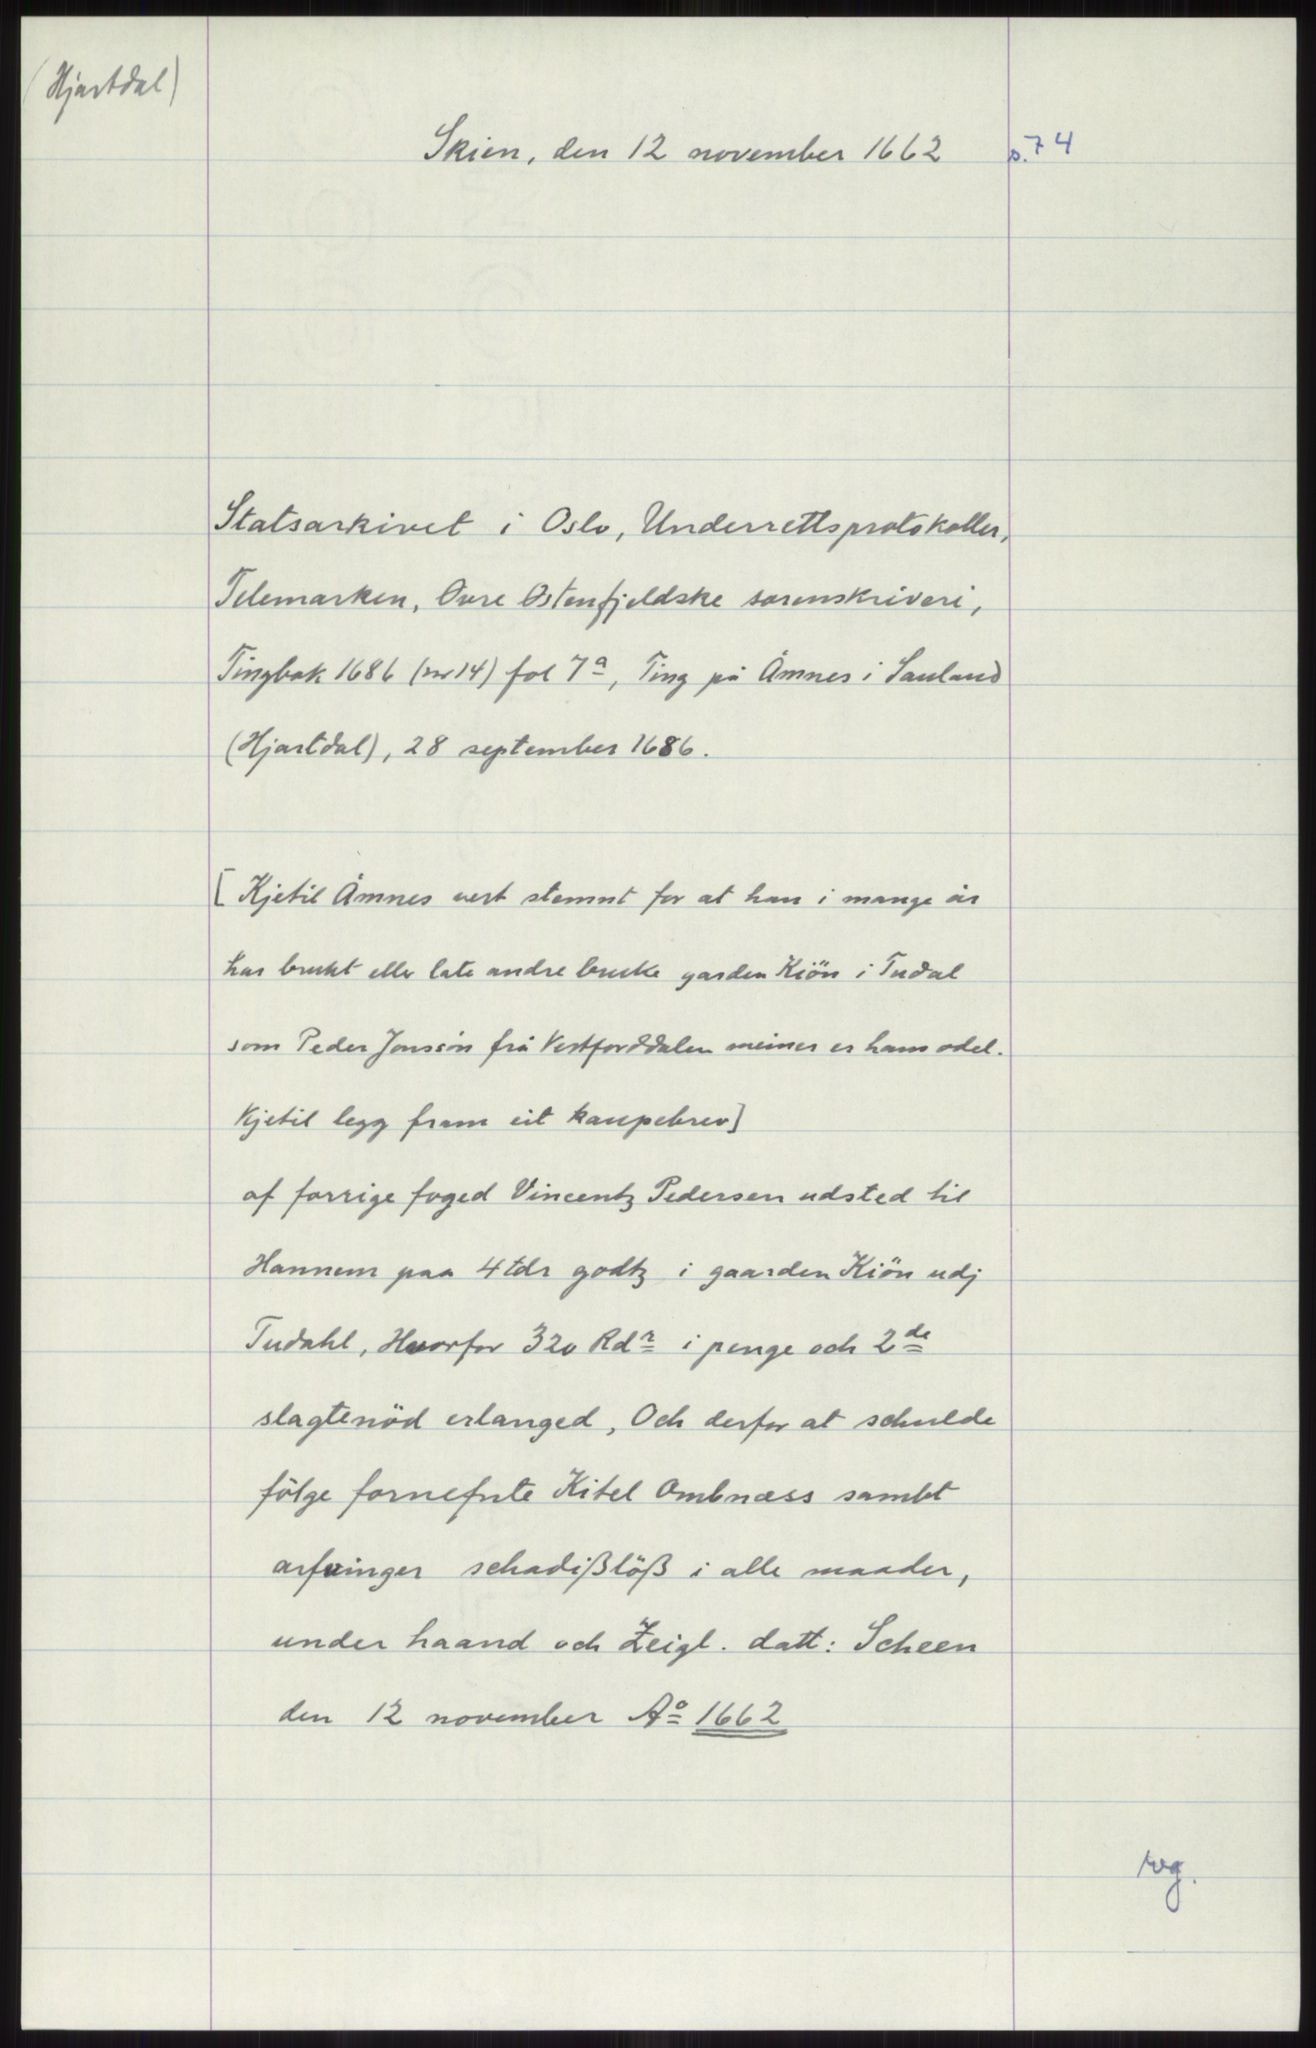 (Hjartdal)
Skien, den 12 november 1662
s. 74
Statsarkivet i Oslo, Underrettsprotokoller,
Telemarken, Øvre Østenfjeldske sorenskriveri,
Tingbok 1686 (nr 14) fol 7a, Ting på Åmnes i Sauland
(Hjartdal), 28 september 1686.
[Kjetil Åmnes vert stemnt for at han i mange år
har brukt eller late andre bruke garden Kiön i Tudal
som Peder Jonssön frå Vestfjorddalen meiner er hans odel.
Kjetil legg fram eit kaupebrev]
af forrige foged Vincentz Pedersen udsted til
Hannem paa 4 tdr godtz i gaarden Kiön udj
Tudahl, Hvorfor 320 Rdr i penge och 2de
slagtenöd erlanged, Och derfor at schulde
fölge fornefnte Kitel Ombnæss sambt
arfvinger schadißlöß i alle maader,
under haand och Zeigl. datt: Scheen
den 12 november Ao 1662
rvg.